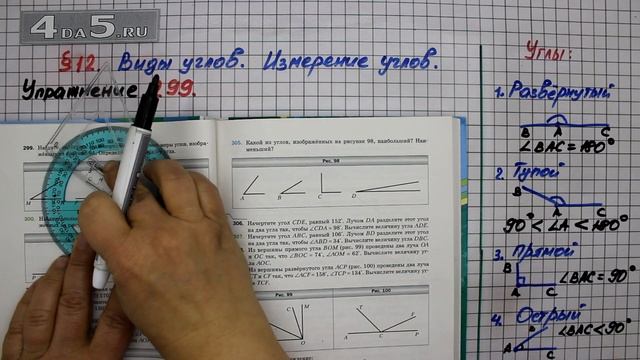 4DA5.RU
§12. Виды углов. Измерение углов.
Упражнение 299.
Углы:
1. Развёрнутый
B A C
∠BAC = 180°
2. Тупой
B
A C
90° < ∠A < 180°
3. Прямой
B
∠BAC = 90°
A C
4. Острый
B
∠BAC < 90°
A C
299.
300.
305. Какой из углов, изображённых на рисунке 98, наибольший? Наи-
меньший?
Рис. 98
A B C D
306. Начертите угол CDE, равный 152°. Лучом DA разделите этот угол
на два угла так, чтобы ∠CDA = 98°. Вычислите величину угла ADE.
Начертите угол ABC, равный 106°. Лучом BD разделите этот угол
на два угла так, чтобы ∠ABD = 34°. Вычислите величину угла DBC.
Из вершины прямого угла BOM (рис. 99) проведены два луча OA
и OC так, что ∠BOC = 74°, ∠AOM = 62°. Вычислите величину
угла AOC.
Из вершины развёрнутого угла ACP (рис. 100) проведены два луча
CT и CF так, что ∠ACF = 158°, ∠TCP = 134°. Вычислите величину уг-
ла TCF.
Рис. 99
Рис. 100
M
C
O
T F
A C P